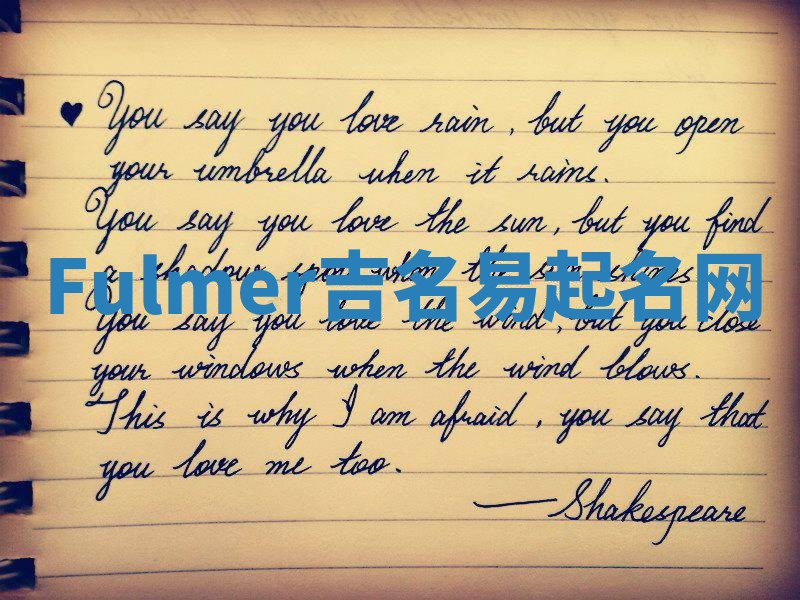 ♥ You say you love rain, but you open
your umbrella when it rains.
You say you love the sun, but you find
a shadow spot when the sun shines
Fulmer吉名易起名网
You say you love the wind, but you close
your windows when the wind blows.
This is why I am afraid, you say that
you love me too.
—Shakespeare